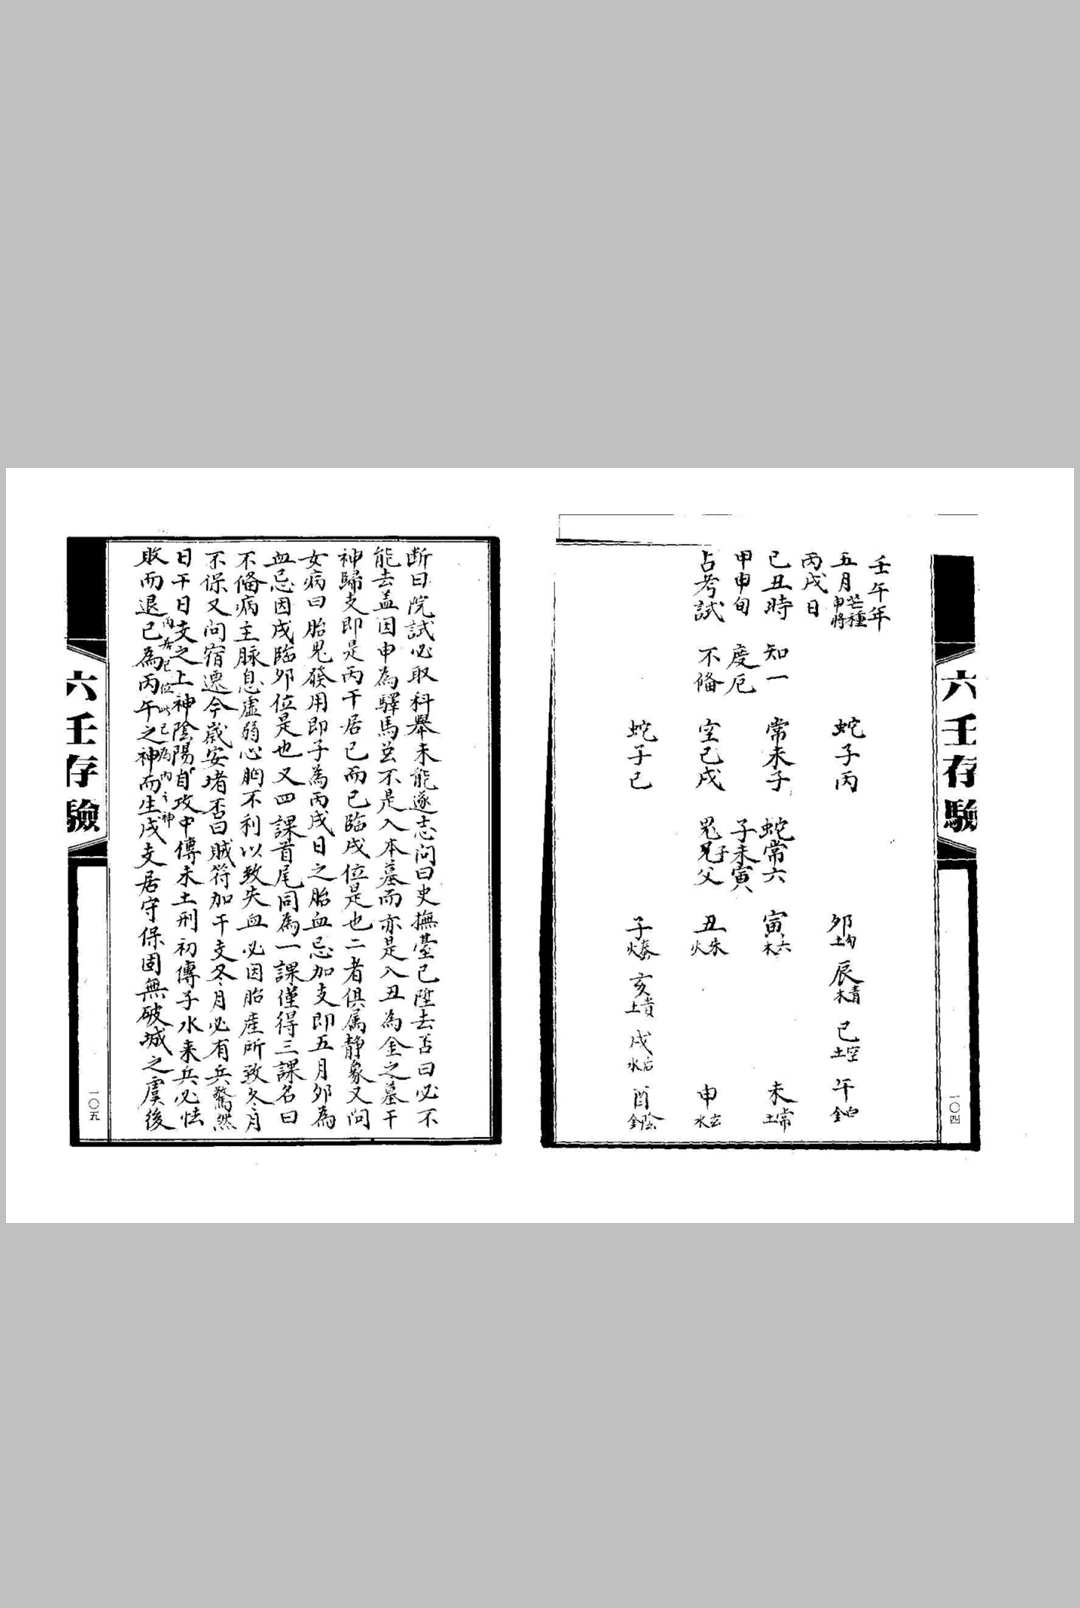 六壬存驗
一〇四
壬午年
五月芒種申將
丙戌日
己丑時 知一
甲申旬 度厄
占考試 不備
蛇子丙
常未子
空巳戌
蛇子巳
蛇常六
子未寅
鬼兄子父
卯勾土 辰青木 巳空土 午白金
寅六木 未常土
丑朱火 申玄水
子螣火 亥貴土 戌后水 酉陰金
断曰院試必取科舉未能遂志問曰史撫臺已陞去否曰必不
能去盖因申為驛馬並不是入本墓而亦是入丑為金之墓干
神歸支即是丙干居巳而巳臨戌位是也二者俱属静象又問
女病曰胎鬼發用即子為丙戌日之胎血忌加支即五月卯為
血忌因戌臨卯位是也又四課首尾同為一課僅得三課名曰
不備病主脉息虚弱心胸不利以致失血必因胎產所致冬月
不保又問宿遷今歲安堵否曰賊符加干支冬月必有兵驚然
日干日支之上神陰陽自攻中傳未土刑初傳子水来兵必怯
丙寄巳位以巳為丙之神
敗而退巳為丙午之神而生戌支居守保固無破城之虞後
六壬存驗
一〇五